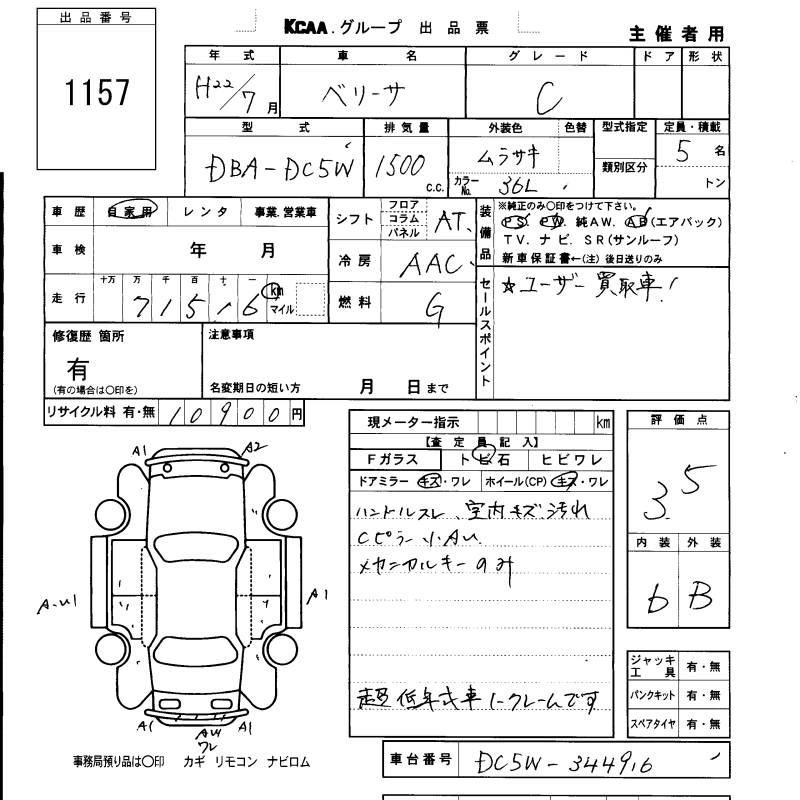 出品番号
1157
KCAA.グループ 出品票
主催者用
年式 車名 グレード ドア 形状
H22/7月 ベリーサ C
型式 排気量 外装色 色替 型式指定 定員・積載
DBA-DC5W 1500 c.c. ムラサキ 類別区分 5名
カラーNo. 36L トン
車歴 自家用 レンタ 事業.営業車
車検 年 月
走行 十万 万 千 百 十 一
71516 km マイル
シフト フロア コラム パネル AT.
冷房 AAC
燃料 G
装備品
※純正のみ○印をつけて下さい。
PS. PW. 純AW. AB(エアバック)
TV. ナビ. SR(サンルーフ)
新車保証書←(注)後日送りのみ
セールスポイント
☆ユーザー買取車!
修復歴 箇所
有
(有の場合は○印を)
注意事項
名変期日の短い方 月 日まで
リサイクル料 有・無 10900円
現メーター指示 km
【査定員記入】
Fガラス トビ石 ヒビワレ
ドアミラー キズ・ワレ ホイール(CP) キズ・ワレ
ハンドルスレ、室内キズ汚れ
Cピラー小AU
メカニカルキーのみ
超低年式車ノークレームです
評価点
3.5
内装 外装
6 B
ジャッキ工具 有・無
パンクキット 有・無
スペアタイヤ 有・無
A1 A2
A-U1 A1
A1 AU A1
ワレ
事務局預り品は○印 カギ リモコン ナビロム
車台番号 DC5W-344916